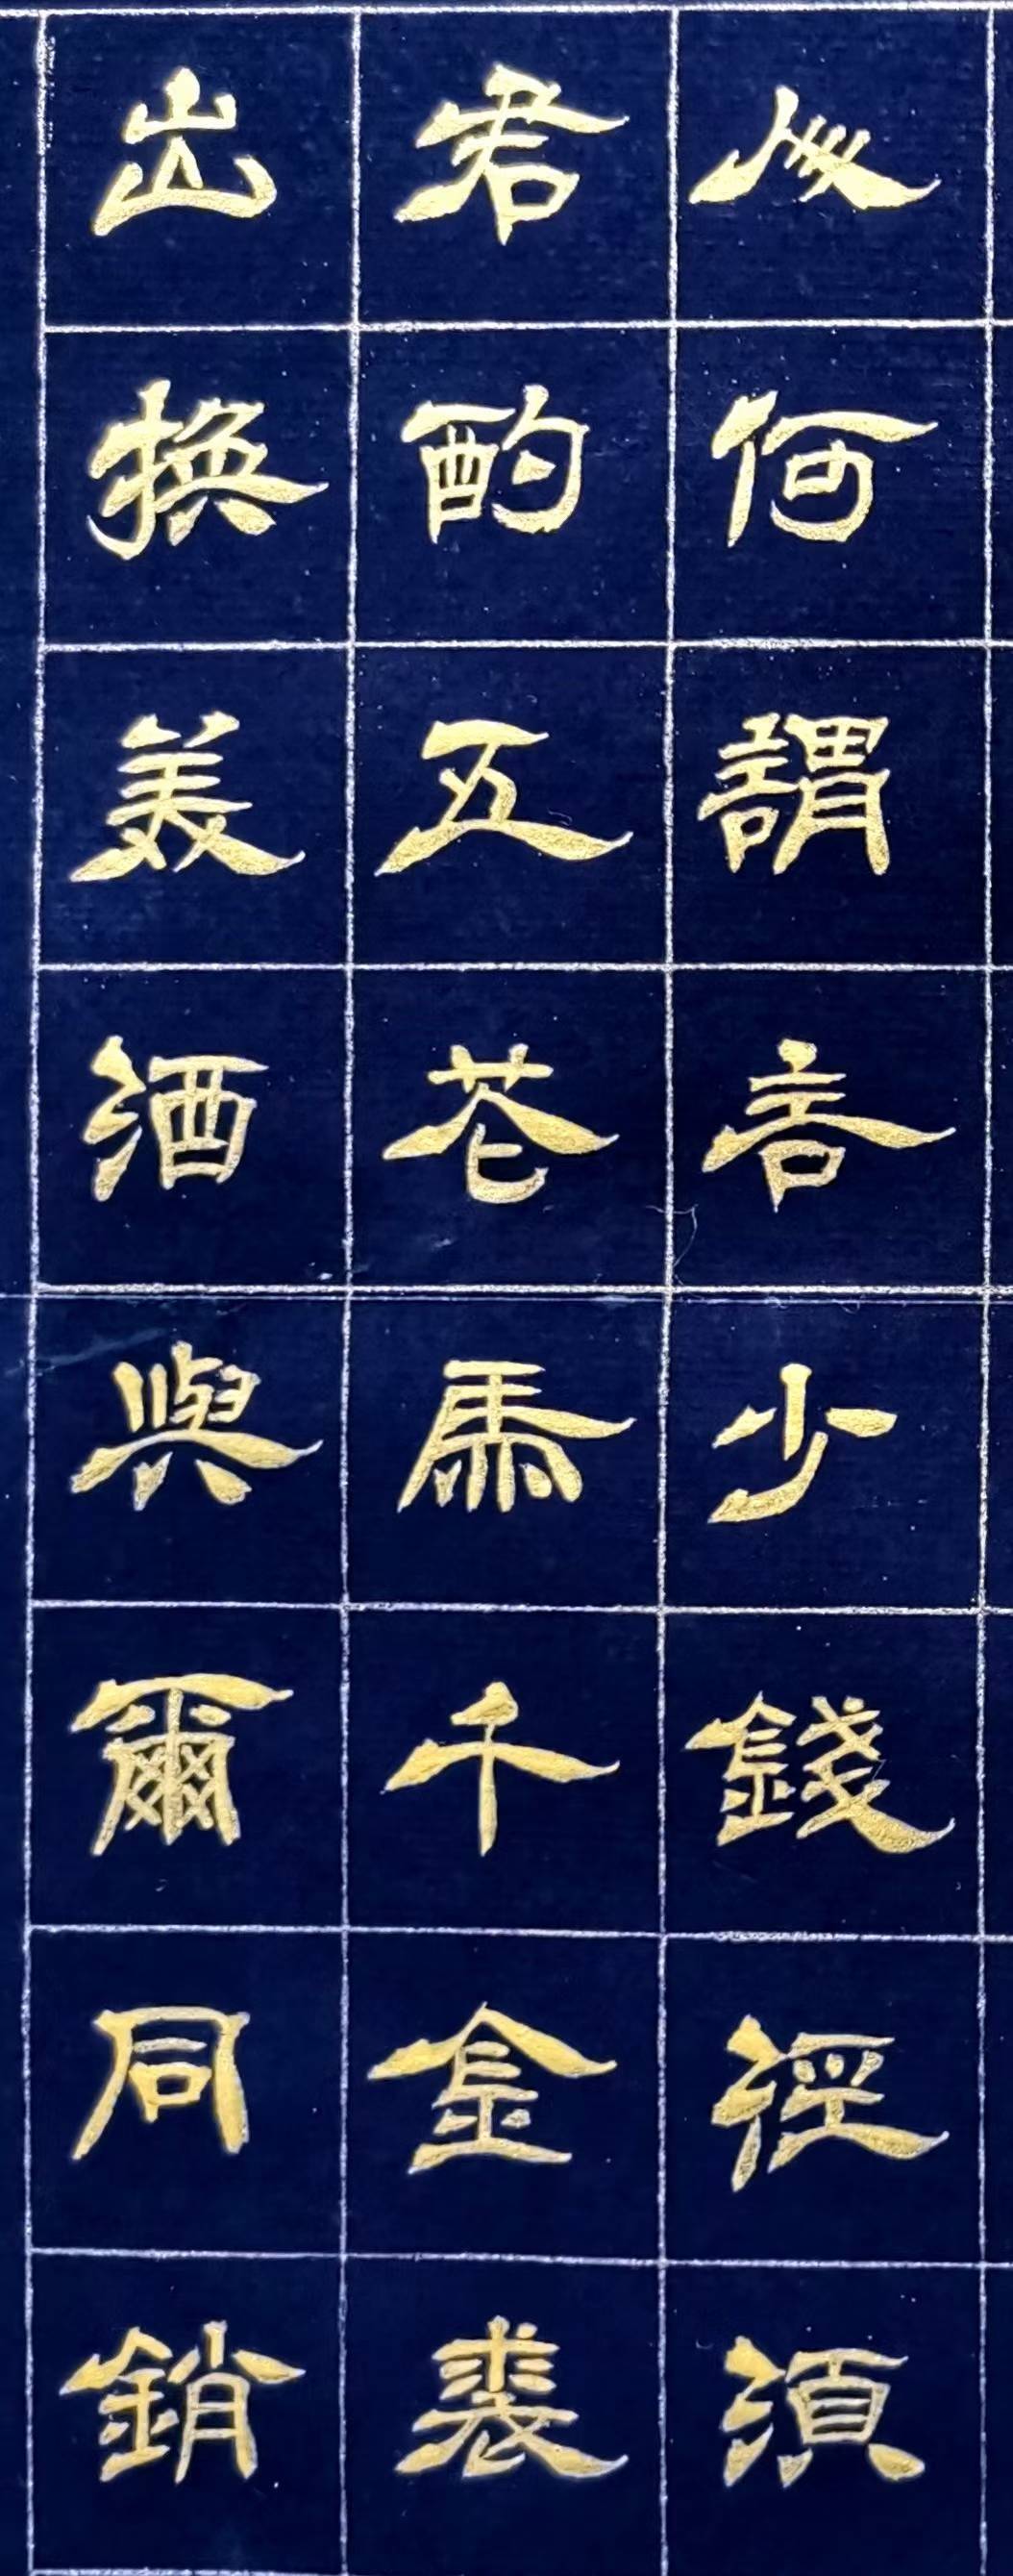 人何謂言少錢徑須
君酌五花馬千金裘
出換美酒與爾同銷